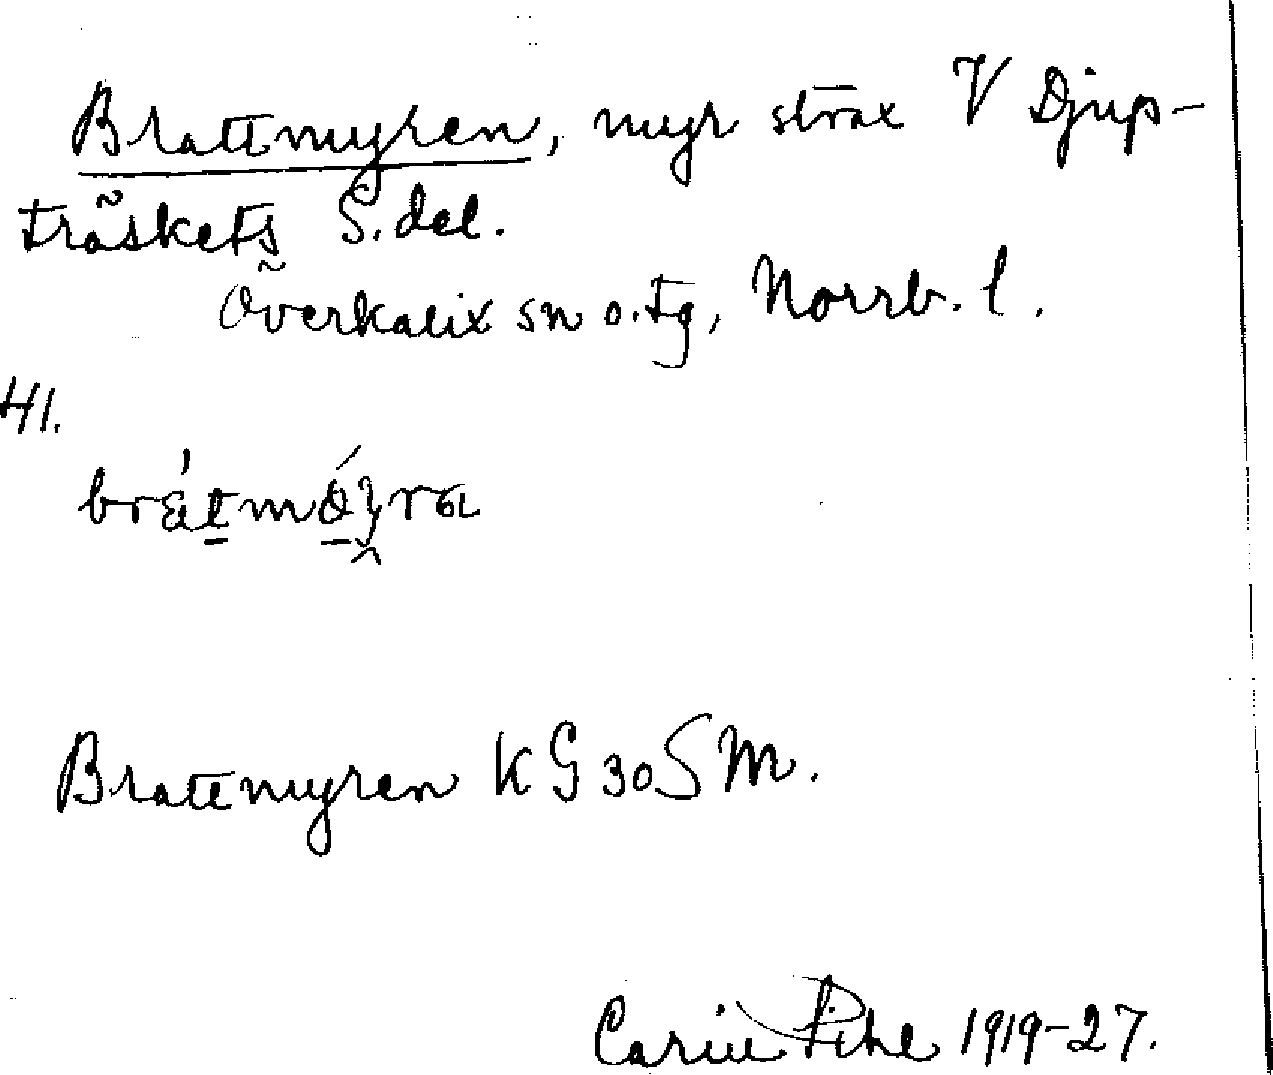 Brattmyren, myr strax V Djup-
träskets S. del.
Överkalix sn o. tg, Norrb. l.
41.
Brattmyren KG 30 S M.
Carin Pihl 1919-27.